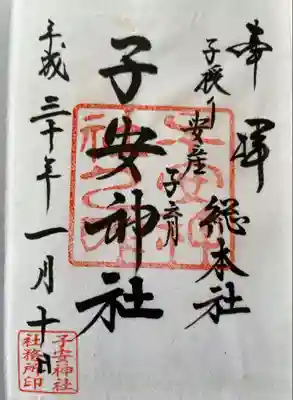 奉拝
子授り安産子育
総本社
子安神社
平成三十年一月十日
子安神社
社務所印